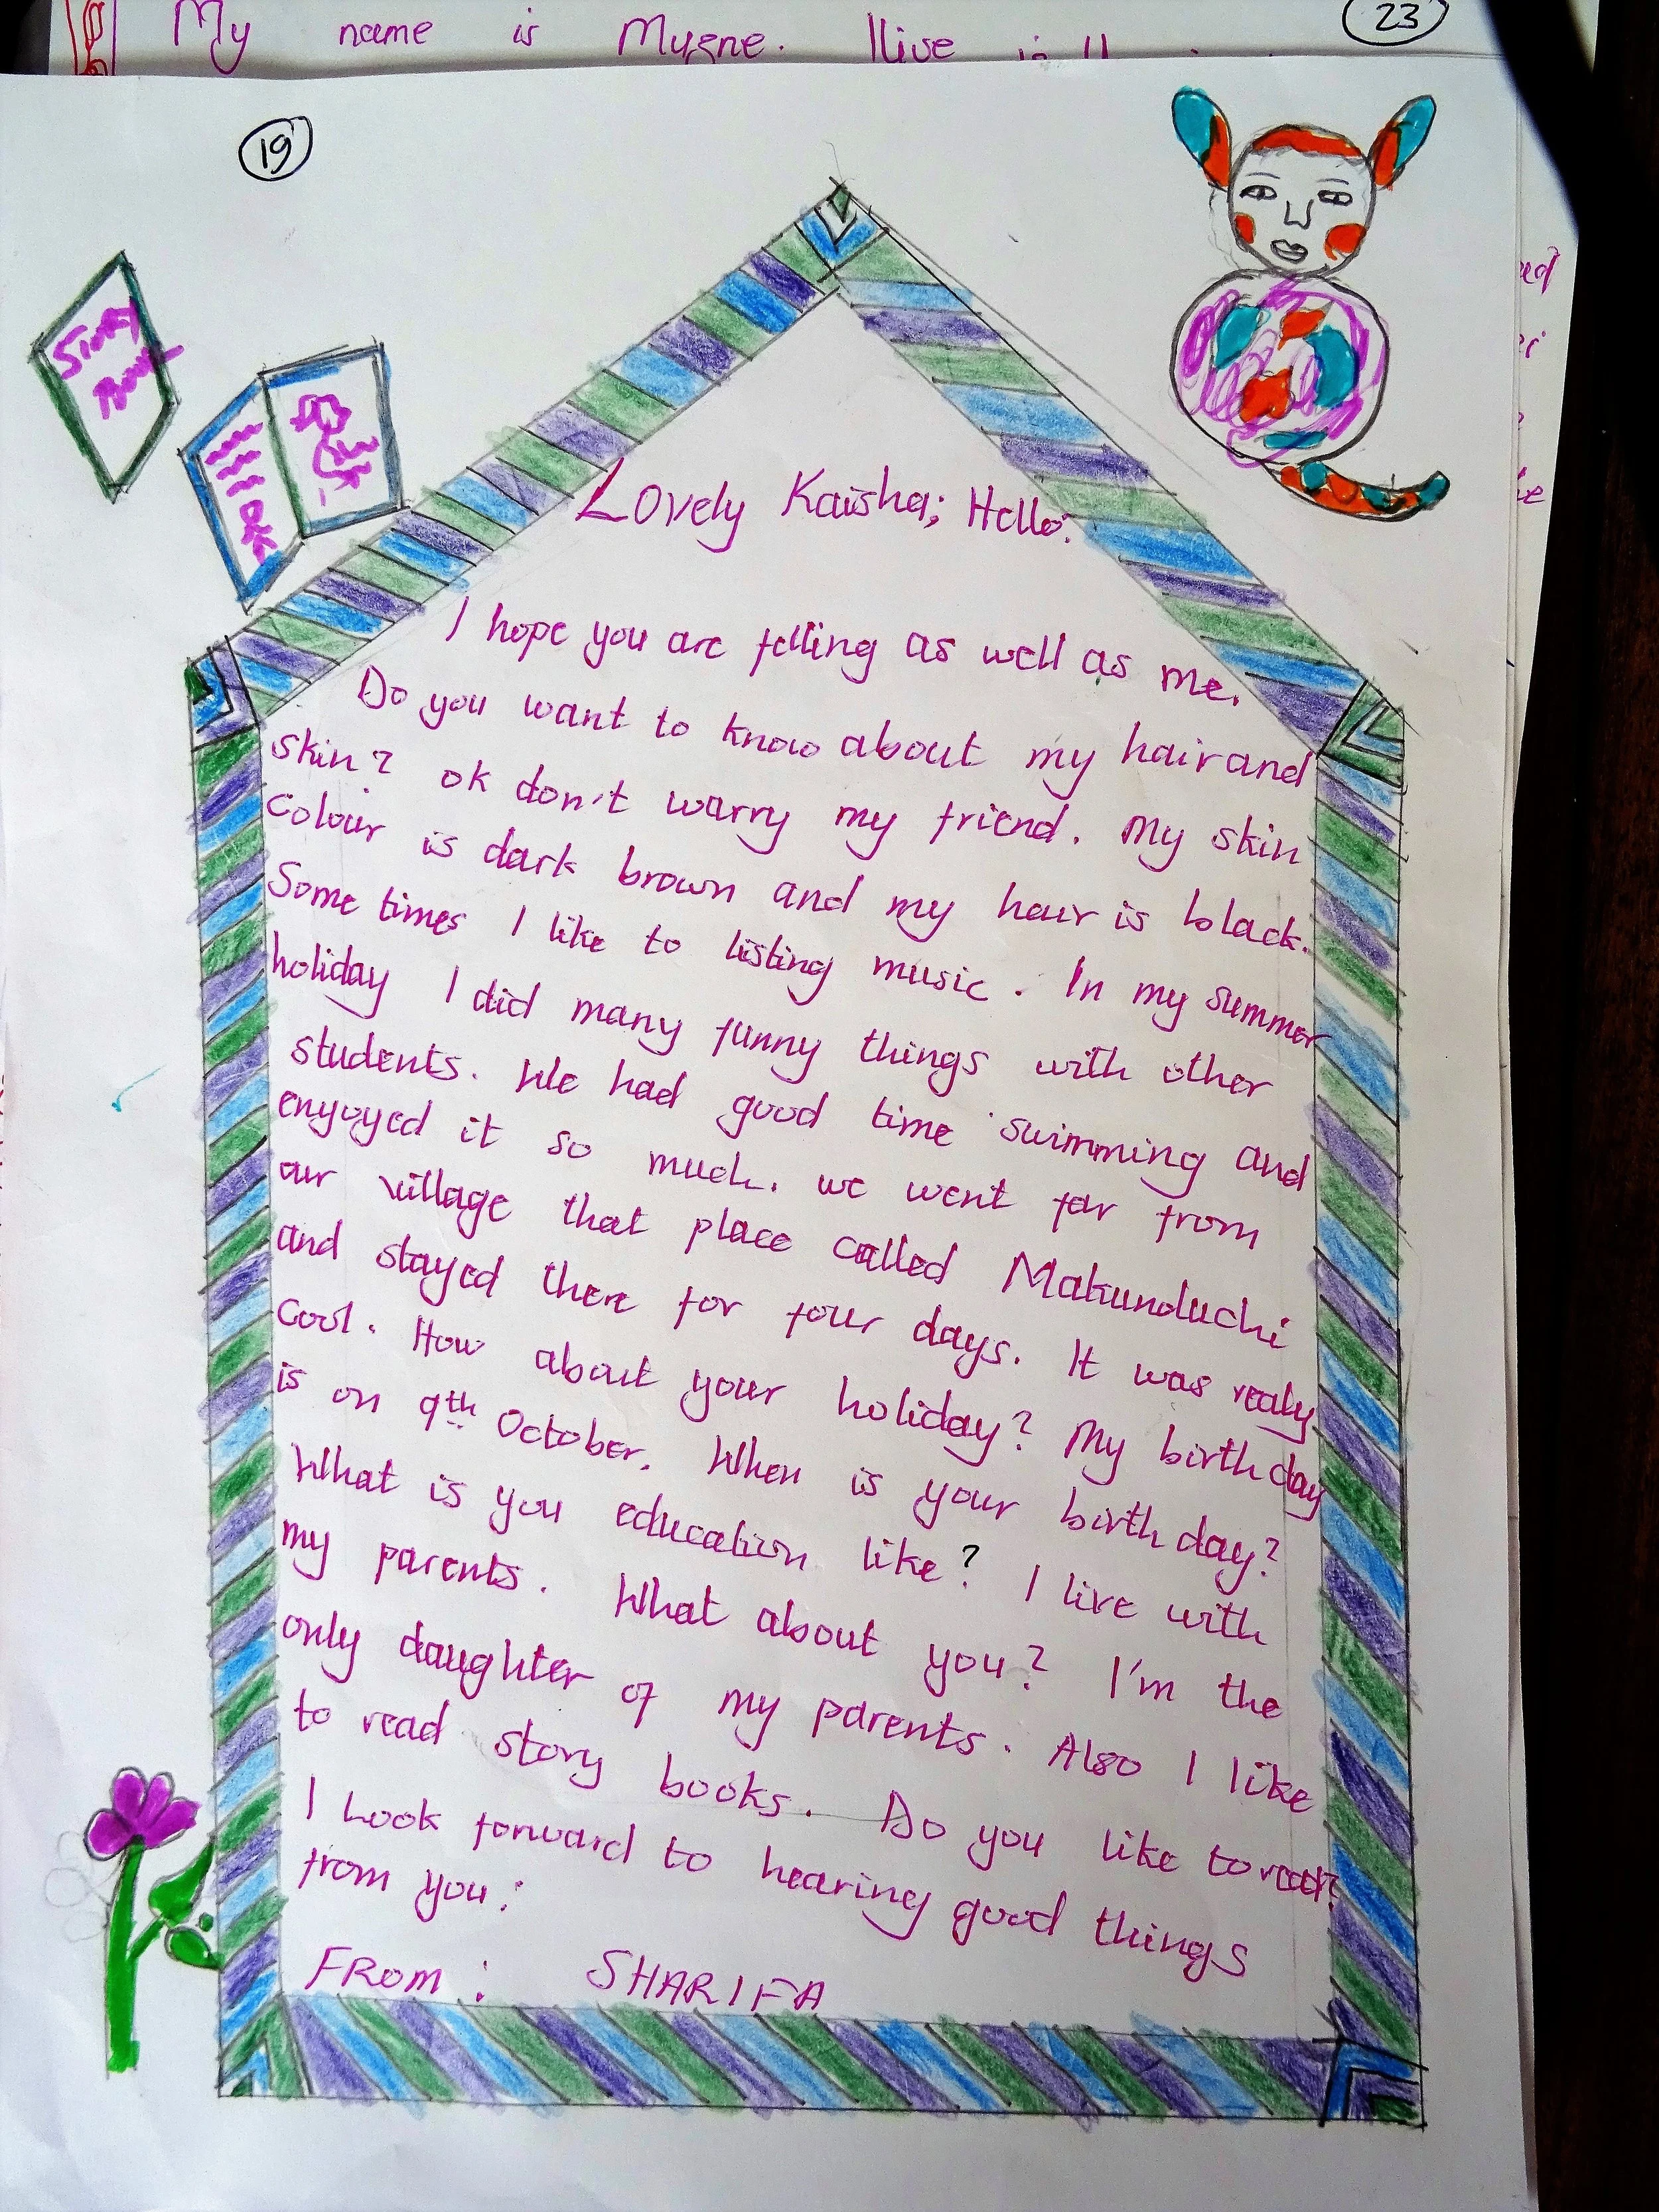 My name is Mygne. I live
23
19
Story
Book
Lovely Kaisha; Hello:
I hope you are felling as well as me.
Do you want to know about my hair and
skin? ok don't warry my friend. My skin
colour is dark brown and my hair is black.
Some times I like to listing music. In my summer
holiday I did many funny things with other
students. We had good time swimming and
enyoyed it so much. we went far from
our village that place called Makunduchi
and stayed there for four days. It was realy
cool. How about your holiday? My birth day
is on 9th October. When is your birth day?
What is you education like? I live with
my parents. What about you? I'm the
only daughter of my parents. Also I like
to read story books. Do you like to read?
I Look forward to hearing good things
from you:
FROM: SHARIFA